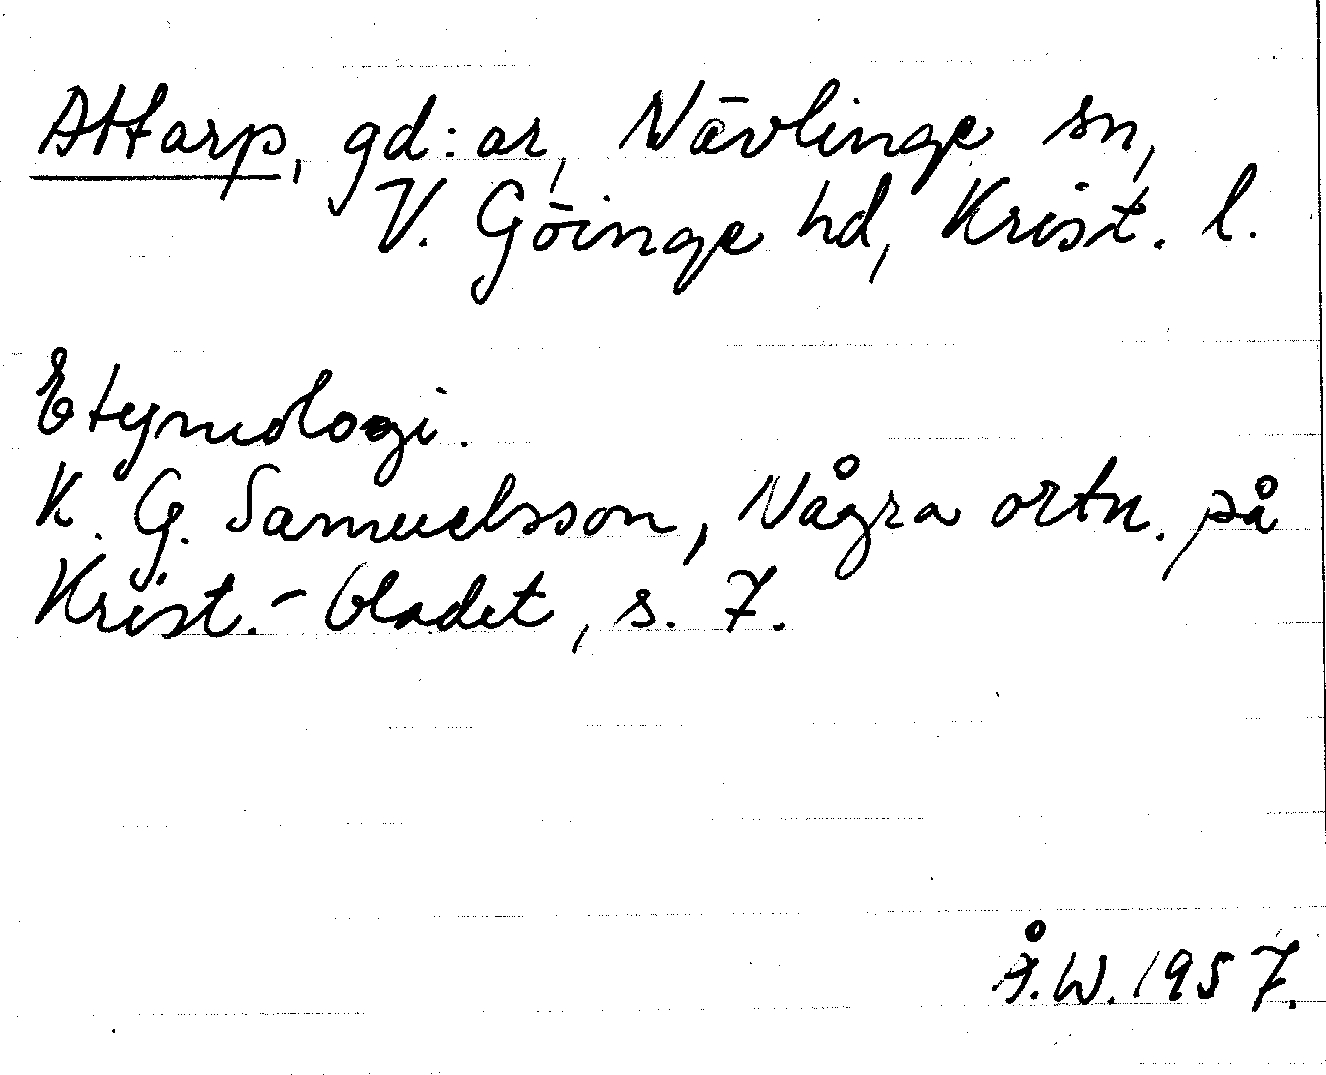 Attarp, gd:ar, Nävlinge sn,
V. Göinge hd, Krist. l.
Etymologi.
K. G. Samuelsson, Några ortn. på
Krist.-bladet, s. 7.
Å.W. 1957.